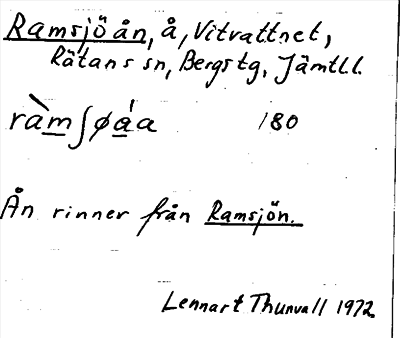 Ramsjöån, å, Vitvattnet,
Rätans sn, Bergs tg, Jämtl.l.
ràm∫øa̍a 180
Ån rinner från Ramsjön.
Lennart Thunvall 1972